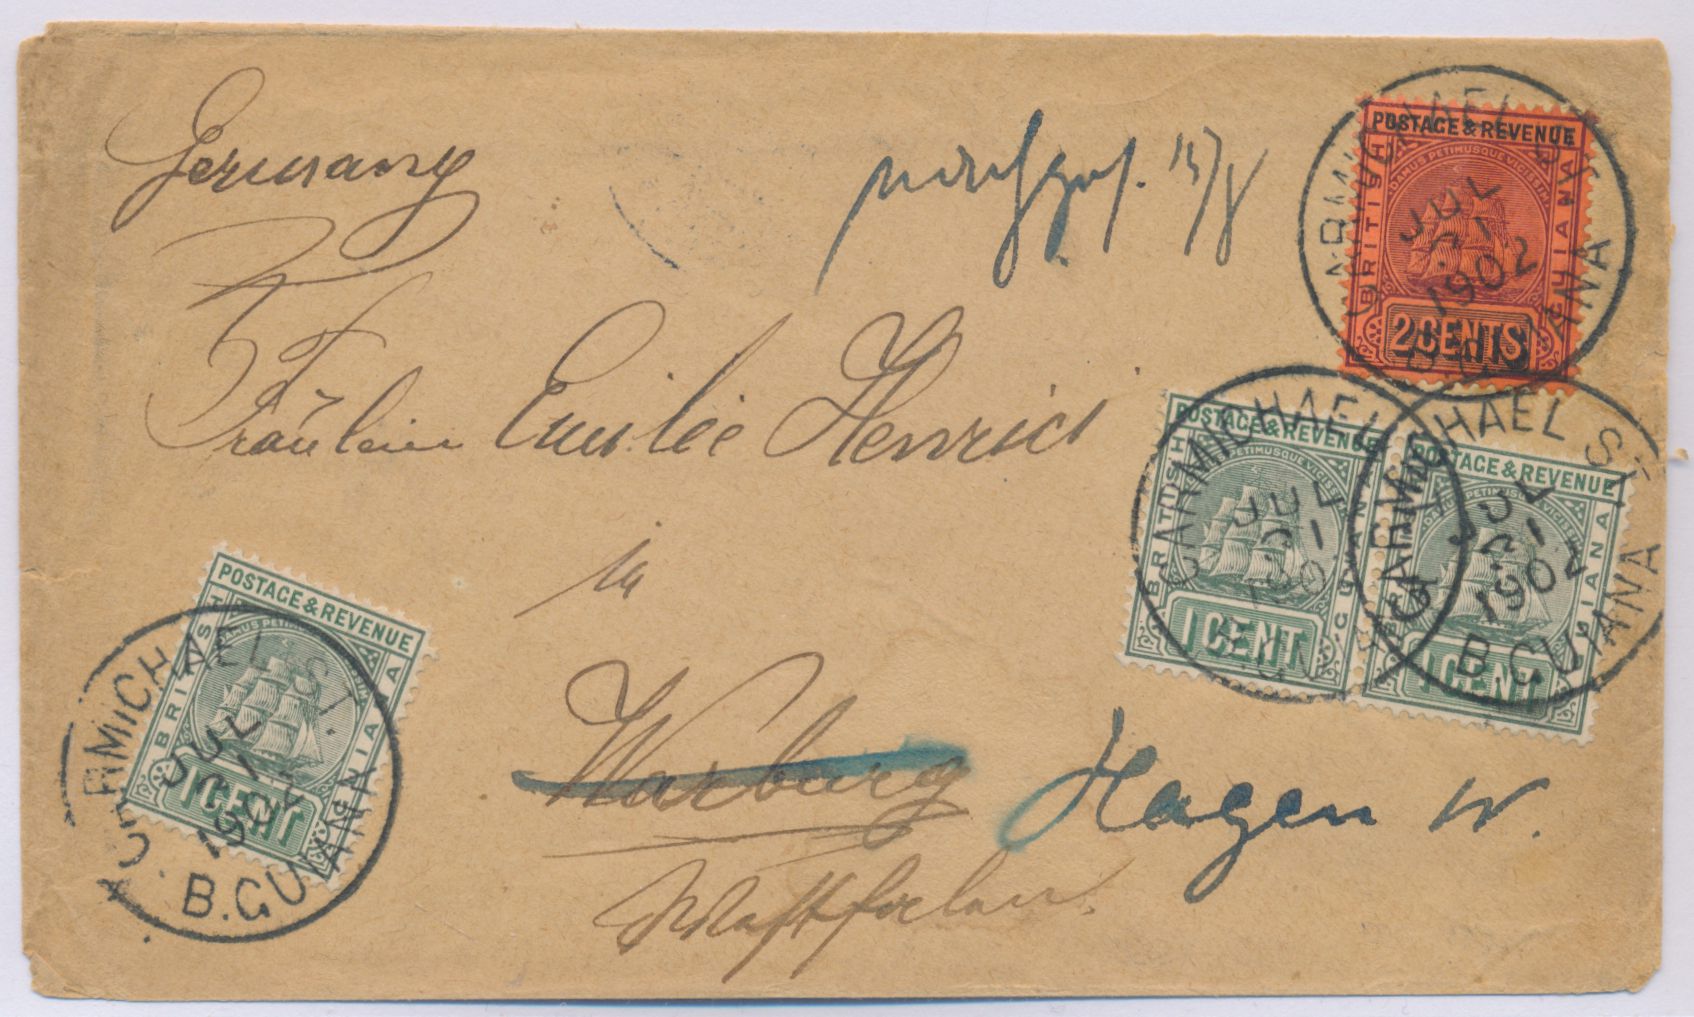 Germany
nachges. 13/8
Fräulein Emilie Henrici
in
Warburg Hagen W.
Westfalen.
POSTAGE & REVENUE
BRITISH GUIANA
DAMUS PETIMUSQUE VICISSIM
2 CENTS
CARMICHAEL ST.
JUL
21
1902
B. GUIANA
POSTAGE & REVENUE
BRITISH GUIANA
DAMUS PETIMUSQUE VICISSIM
1 CENT
CARMICHAEL ST.
JUL
21
1902
B. GUIANA
POSTAGE & REVENUE
BRITISH GUIANA
DAMUS PETIMUSQUE VICISSIM
1 CENT
CARMICHAEL ST.
JUL
21
1902
B. GUIANA
POSTAGE & REVENUE
BRITISH GUIANA
DAMUS PETIMUSQUE VICISSIM
1 CENT
CARMICHAEL ST.
JUL
21
1902
B. GUIANA